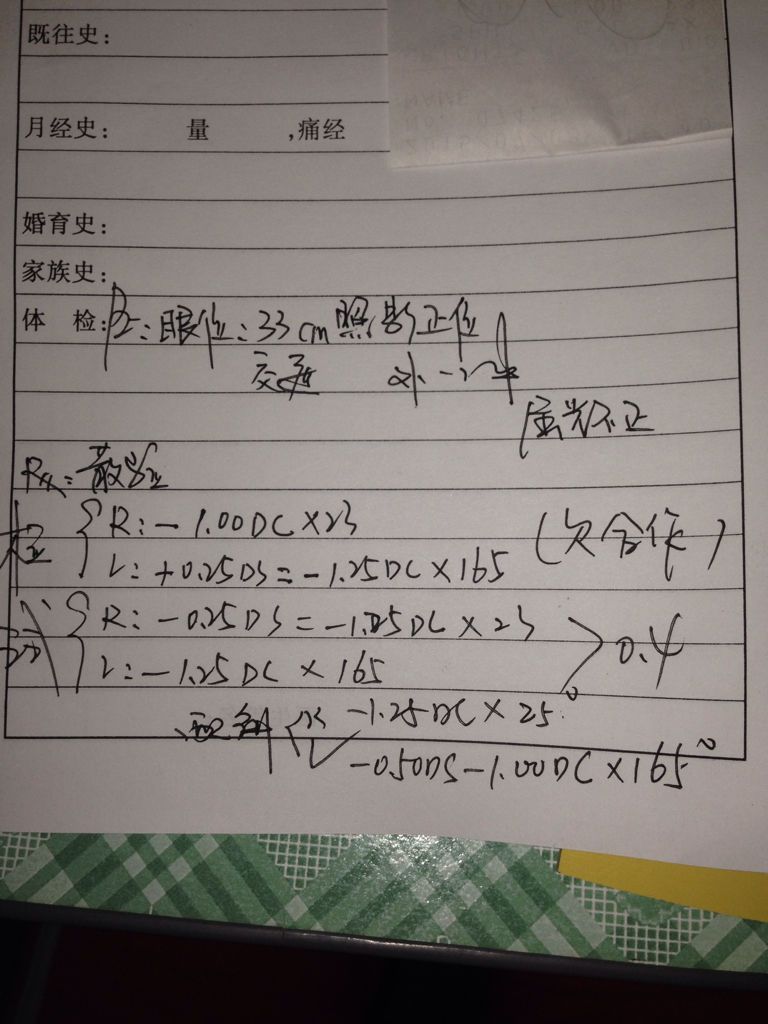 既往史:
月经史: 量 ,痛经
婚育史:
家族史:
体 检: 眼位: 33cm 照影正位
交替 外→中
屈光不正
Rx: 散瞳
R: -1.00DC×23
L: +0.25DS=-1.25DC×165 (欠合作)
R: -0.25DS=-1.25DC×23
L: -1.25DC×165 >0.4
R -1.25DC×25°
L -0.50DS-1.00DC×165°